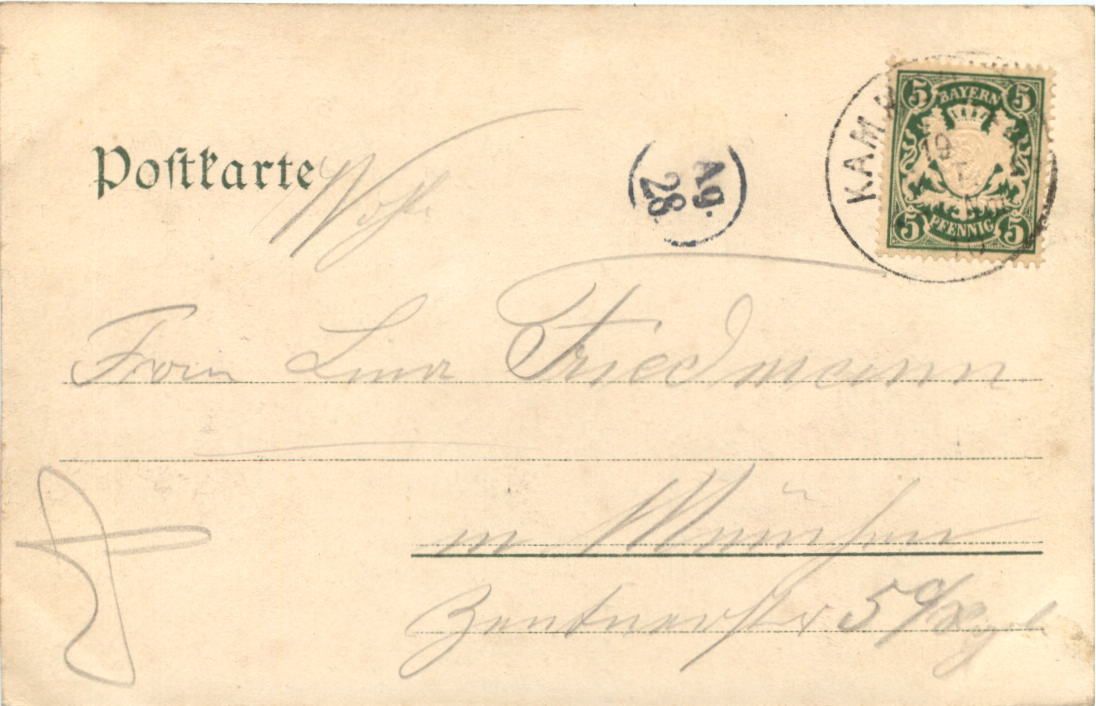 Postkarte
Wohl.
Ag.
28.
KAM
19
5 BAYERN 5
5 PFENNIG 5
Frau Lina Friedmann
in München
Zentnerstr 5